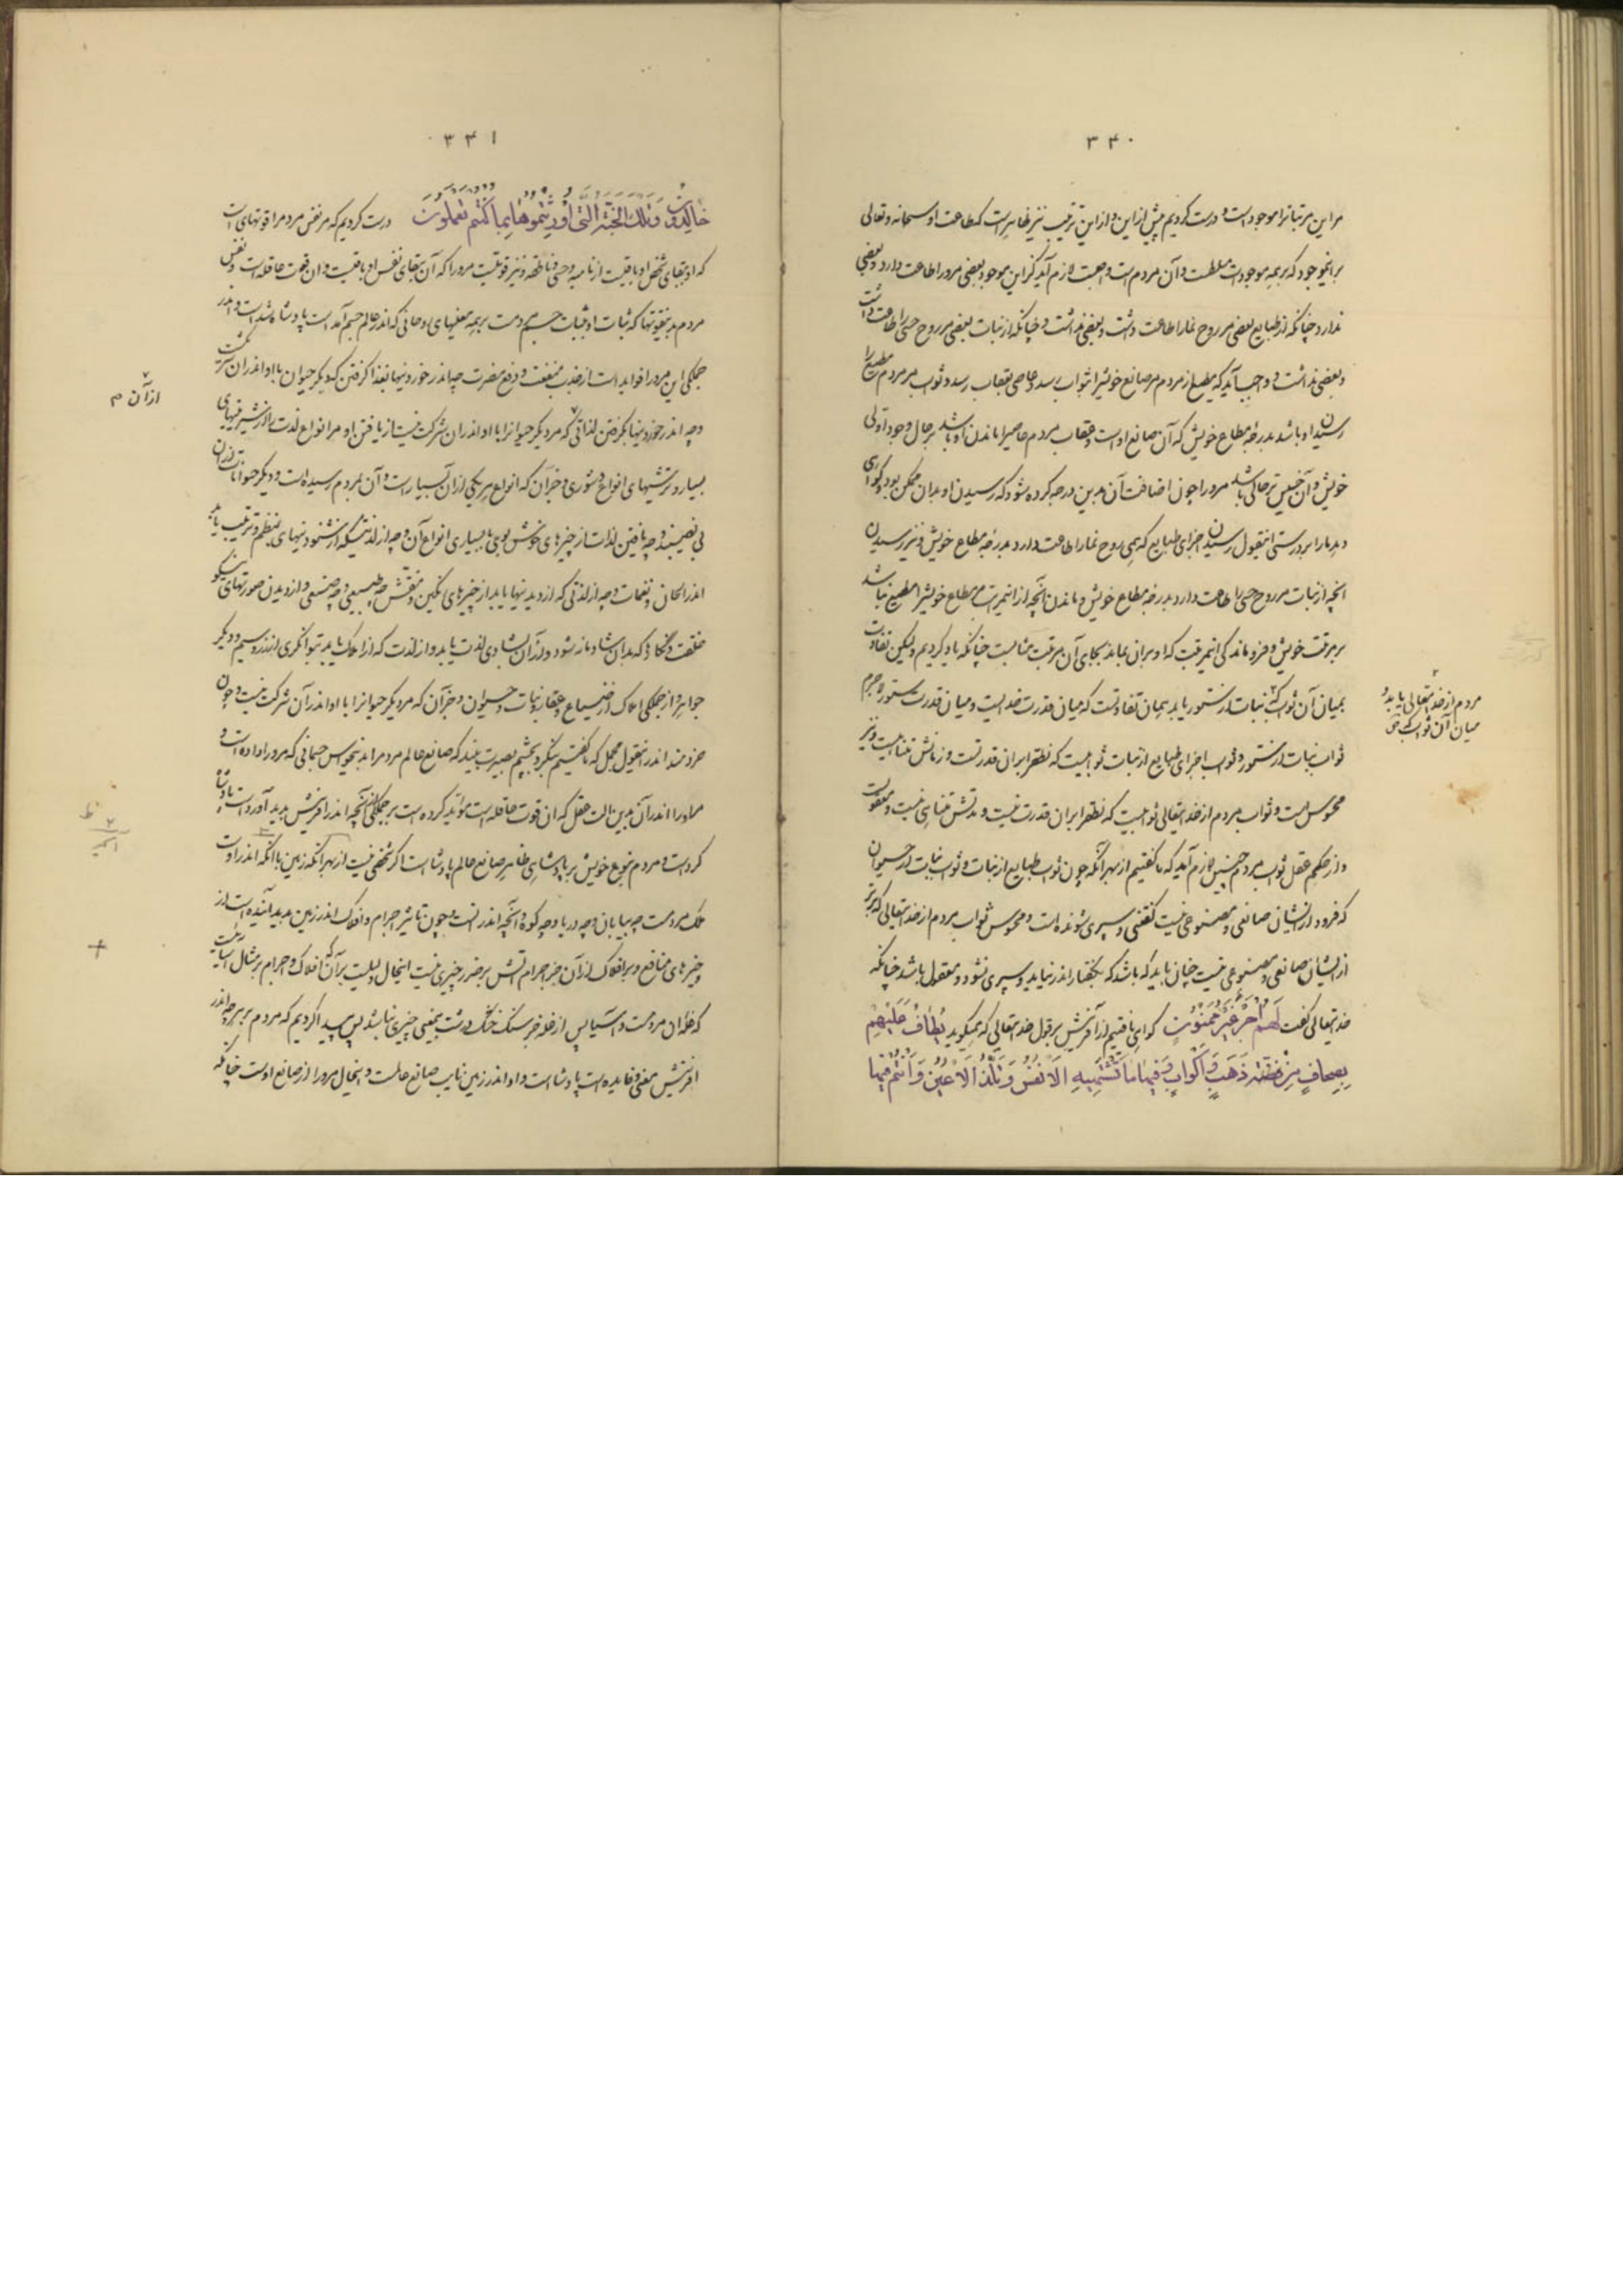 ۳۴۰
مر این مرتبتا ترا موجود است و درست کردیم پیش از این و از این ترتیب نیز ظاهر است که طاعت او سبحانه و تعالی
بر این موجود که بر همه موجودات مسلطست و آن مردم است واجبست لازم آید کز این موجود بعضی مرو را طاعت دارد و بعضی
ندارد چنانکه از طبایع بعضی مر روح نما را طاعت داشت و بعضی نداشت و چنانکه از نبات بعضی مر روح حسی را طاعت داشت
و بعضی نداشت و واجب آید که مطیع از مردم مر صانع خویش را بثواب رسد و عاصی بعقاب رسد و ثواب مر مردم مطیع را
رسیدن او باشد بدرجه مطاع خویش که آن صانع اوست و عقاب مردم عاصی را ماندن او باشد بر حال وجود اولی
خویش و آن خسیس تر حالی باشد مرو را چون اضافت آن بدین درجه کرده شود که رسیدن او بدان ممکن بود و گواهی
دهد ما را بر درستی این قول رسیدن اجزای طبایع که همی روح نما را طاعت دارد بدرجه مطاع خویش و نیز رسیدن
آنچه از نبات مر روح حسی را طاعت دارد بدرجه مطاع خویش و ماندن آنچه از این مرتب مطاع خویش را مطیع نباشد
بر مرتبت خویش و فرو ماندگی از این مرتبت که او بر آن بماند بجای آن مرتبت مثابست چنانکه یاد کردیم ولیکن تفاوت
بمیان آن ثواب که نبات از ستور یابد بمیان تفاوتست که میان قدرت خدا است و میان قدرت ستور و اجرام
ثواب نبات از ستور و ثواب اجزای طبایع از نبات ثوابیست که نطهر ایران قدرتست و زمانش متناهیست و نیز
محسوس است و ثواب مردم از خدایتعالی ثوابیست که نطهر ایران قدرت نیست و مدتش متناهی نیست و معقولست
و از حکم عقل ثواب مردم چنین لازم آید که ما گفتیم از بهر آنکه چون ثواب طبایع از نبات و ثواب نبات از حیوان
که فرود از ایشان صانعی و مصنوعی نیست گفتنی و سپری شونده است و محسوس ثواب مردم از خدایتعالی که برتر
از ایشان صانعی و مصنوعی نیست چنان باید که باشد که بگفتار اندر نیاید و سپری نشود و معقول باشد چنانکه
خدایتعالی گفت لَهُم اَجرٌ غَیرُ مَمنُونٍ گواهی یافتیم از آفرینش بر قول خدایتعالی که همیگوید یُطَافُ عَلَیهِم
بِصِحَافٍ مِن فِضَّةٍ ذَهَبٍ وَاَکوَابٍ وَفِیهَا مَا تَشتَهِیهِ الاَنفُسُ وَتَلَذُّ الاَعیُنُ وَاَنتُم فِیهَا
۲
مردم از خدایتعالی یابد و
میان آن ثواب که
۳۴۱
خَالِدُونَ وَتِلکَ الجَنَّةُ الَّتِی اُورِثتُمُوهَا بِمَا کُنتُم تَعمَلُونَ درست کردیم که مر نفس مردم را قوتهای است
که او ببقای شخص او باقیست از نامیه و حسی و ناطقه و نیز قوتیست مرو را که آن ببقای نفس او باقیست و آن قوت عاقله است و نفس
مردم بدین قوتها که ثبات او بثبات جسم مردمست بر همه معنیهای روحانی که اندر عالم جسم آمده است پادشاه شده است و اندر
جملگی این مرو را فواید است از جذب منفعت و دفع مضرت چه اندر خوردنیها بغذا گرفتن که دیگر حیوان با او اندر آن شریکست
و چه اندر خوردنیها بگرفتن لذاتی که مر دیگر حیوانرا با او اندر آن شرکت نیست از یافتن او مر انواع لذت را از شیرینیهای
بسیار و ترشیهای انواع و شوری و جز آن که انواع هر یکی از آن بسیار است و آن بمردم رسیده است و دیگر حیوانات از آن
بی نصیبند و چه یافتن لذات از چیزهای خوش بوی با بسیاری انواع آن و چه از لذتی که از شنودنیهای بنظم و ترتیب یابد
اندر الحان و نغمات و چه از لذتی که از دیدنیها یابد از چیزهای رنگین و منقش چه طبیعی و چه صنعی و از دیدن صورتهای نیکو
خلقت و نگار که بدان شادمانه شود و اندر آن شادی لذت یابد و از لذت که از املاک یابد بتوانگری از زر و سیم و دیگر
جواهر و از جملگی املاک از ضیاع و عقار و نبات و حیوان و جز آن که مر دیگر حیوانرا با او اندر آن شرکت نیست و چون
خردمند اندر این قول مجمل که ما گفتیم بنگرد بچشم بصیرت ببیند که صانع عالم مردم را بدین حواس جسمانی که مرو را داده است و
مرورا اندر آن بدین آلت عقل که آن قوت عاقله است مؤید کرده است بر جملگی آنچه اندر آفرینش پدید آورده است پادشاه
کرده است و مردم بنوع خویش بر پادشاهی ظاهر صانع عالم پادشا است اگر شخصی نیست از بهر آنکه زمین با آنکه اندر اوست
ملک مردمست چه بیابان و چه دریا و چه کوه و آنچه اندر آنست و چون تاثیر اجرام و افلاک اندر زمین پدید آینده است از
چیزهای منافع و بر افلاک از آن جز اجرام آتش بر ضرر چیزی نیست اینحال دلیلست بر آن که افلاک و اجرام بر مثال آسیابیست
که غله آن مردمست و آسیا پس از غله جز سنگ خشک درشت بیمعنی چیزی نباشد پس پیدا کردیم که مردم بر هر چه اندر
آفرینش بمعنی و فایده است پادشا است و او اندر زمین نایب صانع عالمست و اینحال مرو را از صانع اوست چنانکه
۷
از آن م